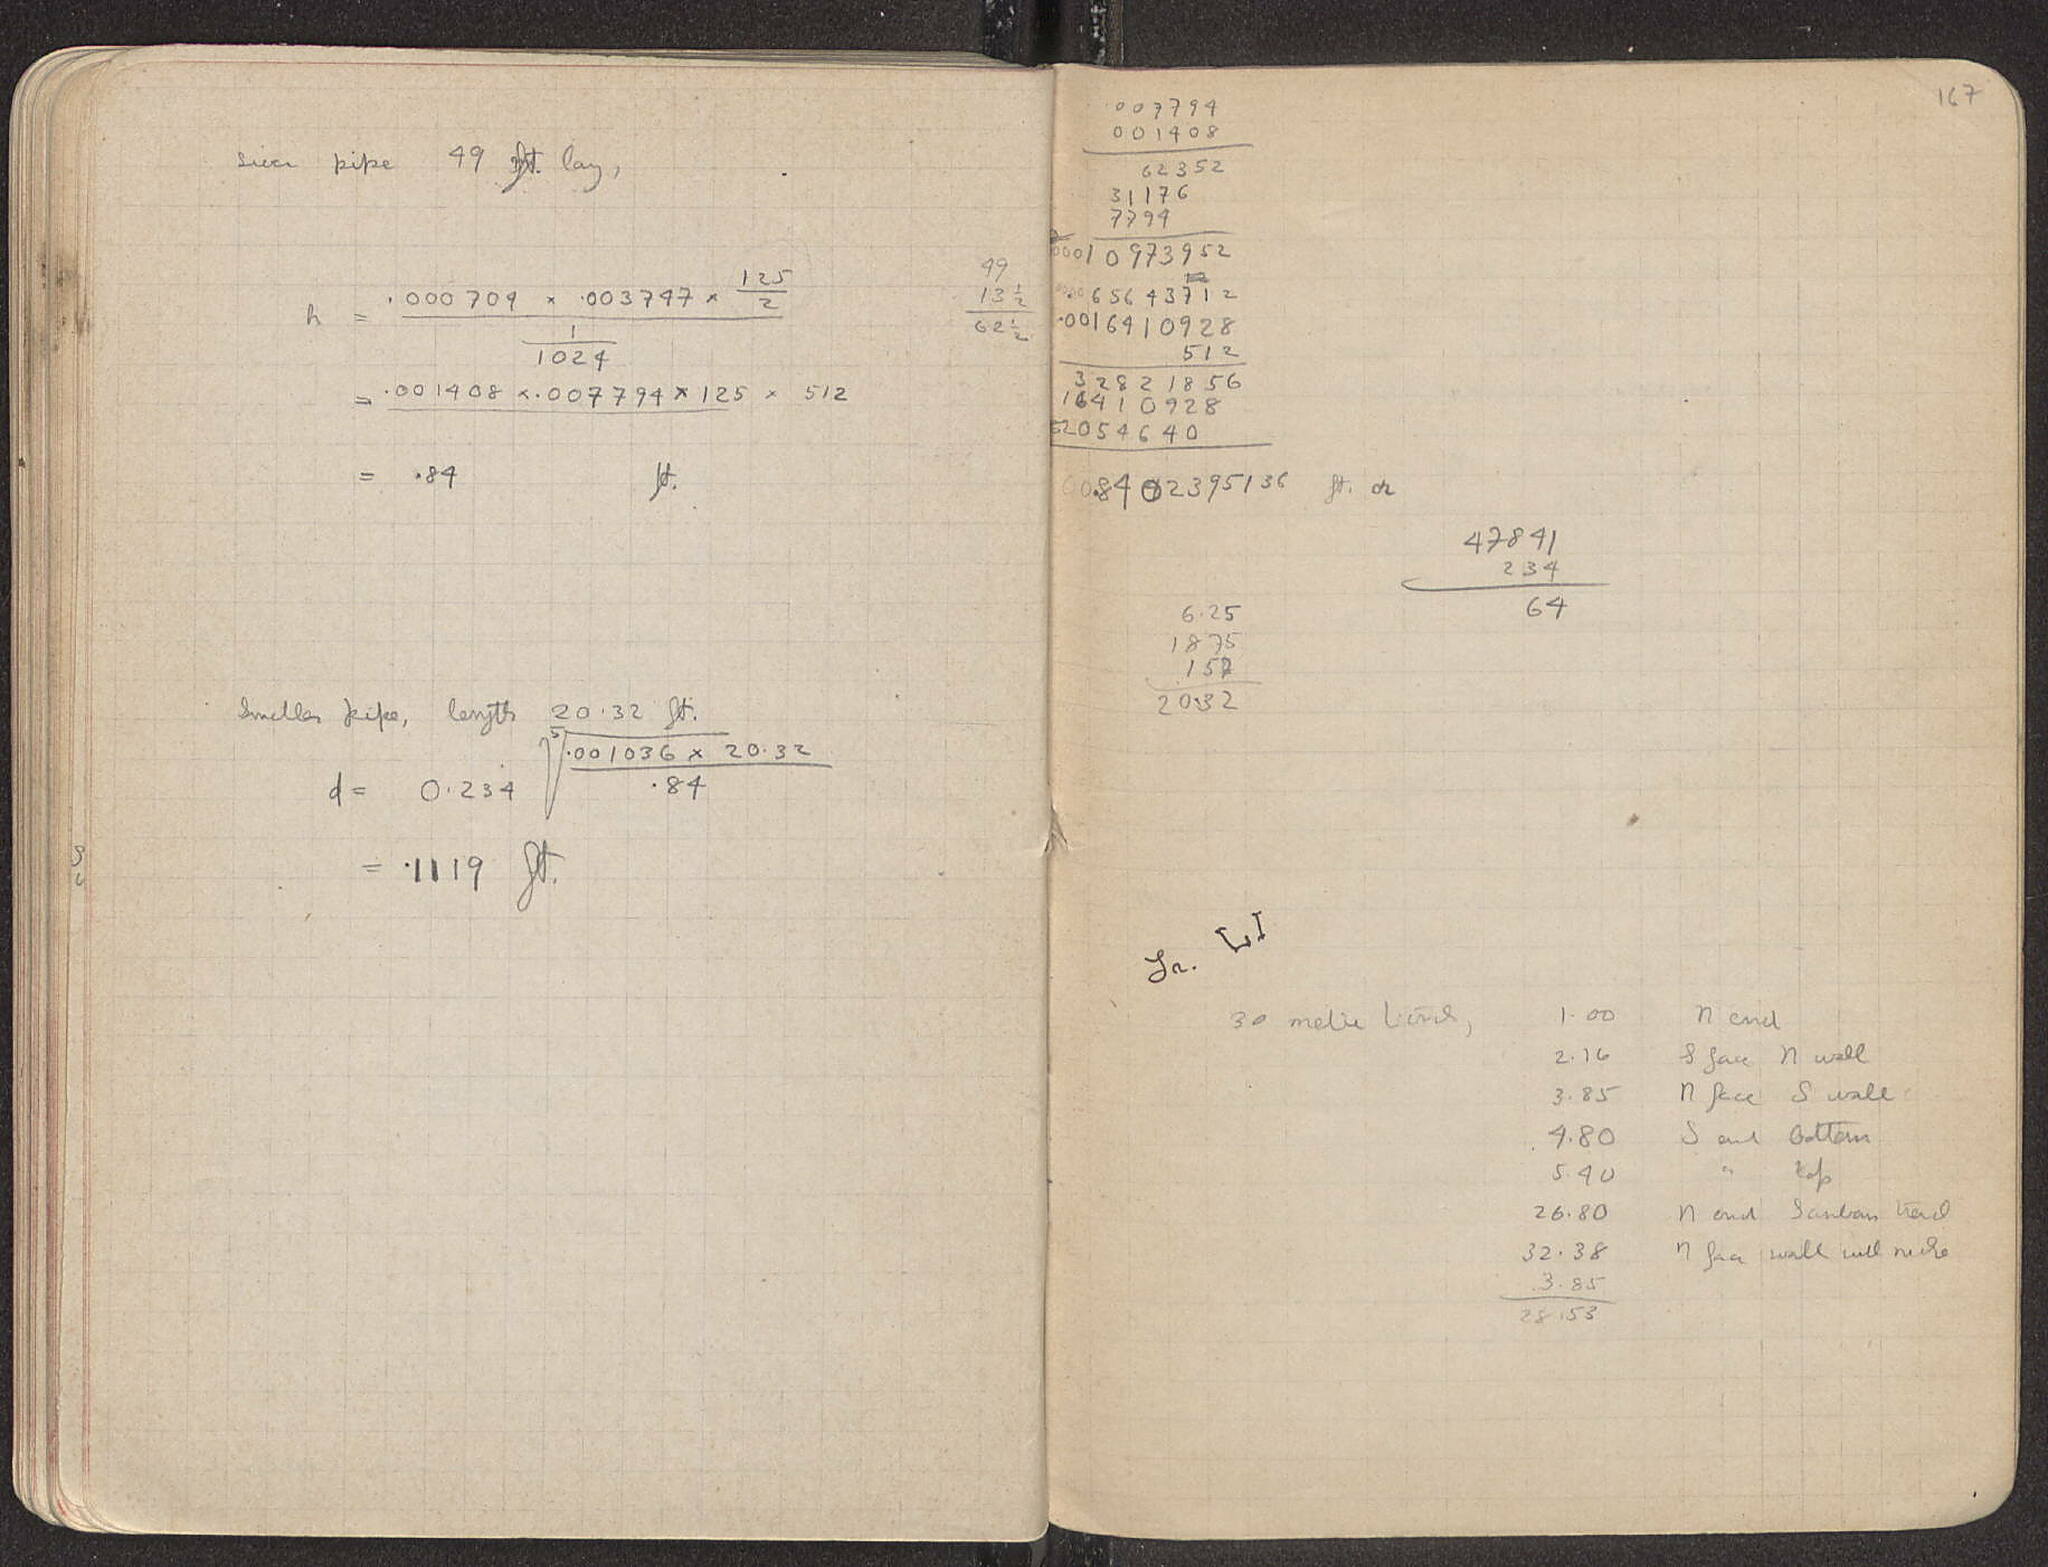 pipe 49 ft. long,
h = .000704 × .003747 × 125/2
1/1024
= .001408 × .007794 × 125 × 512
= .84 ft.
49
13 1/2
62 1/2
Smaller pipe, length 20.32 ft.
d = 0.234 5√ .001036 × 20.32
.84
= .1119 ft.
167
.007794
001408
62352
31176
7794
00010973952
65643712
.0016410928
512
32821856
16410928
82054640
00.8402395136 ft. or
47841
234
64
6.25
1875
157
20.32
30 metre trench, 1.00 N end
2.16 S face N wall
3.85 N face S wall
4.80 S end bottom
5.40 " top
26.80 N end trench
32.38 N face wall with niche
3.85
28.53